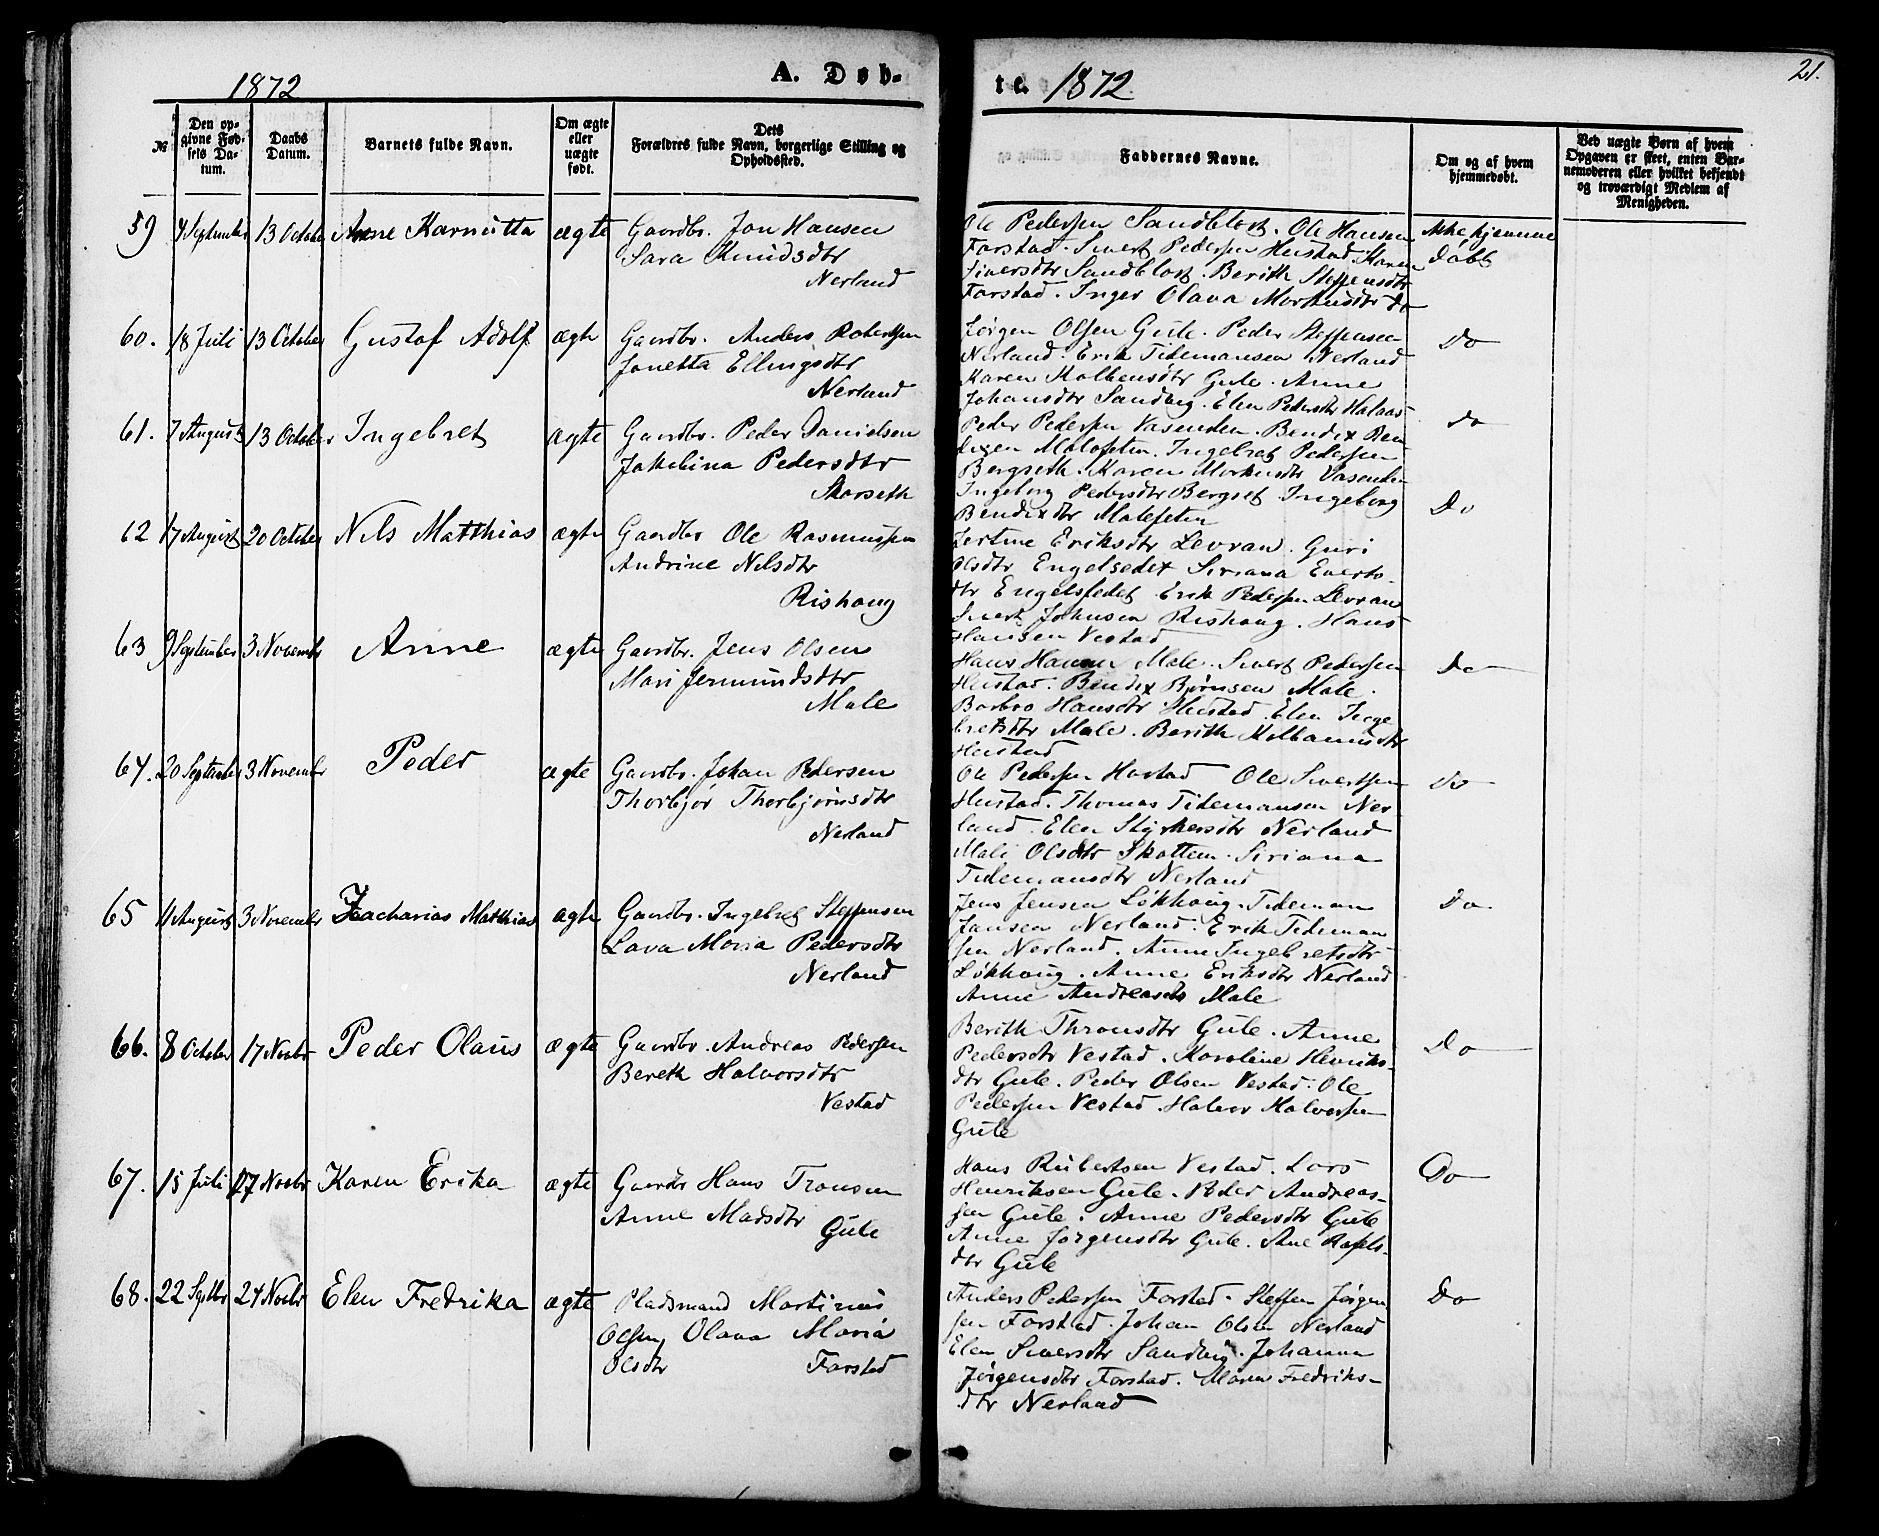 1872
A. Døb-
№
Den opgivne Fødsels Datum.
Daabs Datum.
Barnets fulde Navn.
Om ægte eller uægte født.
Dets Forældres fulde Navn, borgerlige Stilling og Opholdssted.
59 4 September 13 October Anne Karnutta ægte Gaardbr. Jon Hansen
Sara Knudsdtr
Nerland
60. 18 Juli 13 October Gustaf Adolf ægte Gaardbr. Anders Robertsen
Jonetta Ellingsdtr
Nerland
61. 7 August 13 October Ingebret ægte Gaardbr. Peder Danielsen
Jakobina Pedersdtr
Storseth
62 17 August 20 October Nils Matthias ægte Gaardbr Ole Rasmussen
Andrine Nilsdtr
Rishaug
63 9 September 3 November Anne ægte Gaardbr. Jens Olsen
Mari Jermundsdtr
Male
64. 20 September 3 November Peder ægte Gaardbr. Johan Pedersen
Thorbjør Thorbjørnsdtr
Nerland
65 11 August 3 November Zacharias Matthias ægte Gaardbr. Ingebret Steffensen
Lava Maria Pedersdtr
Nerland
66. 8 October 17 Novbr Peder Olaus ægte Gaardbr. Andreas Pedersen
Bereth Halvorsdtr
Vestad
67. 15 Juli 17 Novbr Karen Erika ægte Gaardbr Hans Tronsen
Anne Madsdtr
Gule
68. 22 Septbr 24 Novbr Elen Fredrika ægte Pladsmand Martinus
Olsen Olava Maria
Olsdtr Farstad
te. 1872
21.
Faddernes Navne.
Om og af hvem hjemmedøbt.
Ved uægte Børn af hvem Opgaven er skeet, enten Barnemoderen eller hvilket bekjendt og troværdigt Medlem af Menigheden.
Ole Pedersen Sandblost. Ole Hansen Ikke hjemme
Farstad. Sivert Pedersen Hustad. Karen døbt
Siversdtr Sandblost. Berith Steffensdtr
Farstad. Inger Olava Morkusdtr do
Jørgen Olsen Gule. Peder Steffensen Do
Nerland. Erik Tidemansen Nerland
Karen Kolbensdtr Gule. Anne
Johansdtr Sandvig. Elen Pedersdtr Halaas
Peder Pedersen Vasenden. Bendix Ben do
dixen Malefeten. Ingebret Pedersen
Bergseth. Karen Morkusdtr Vasenden
Ingeborg Pedersdtr Bergset Ingeborg Do
Bendixdtr Malefeten
Jertine Eriksdtr Levran. Guri
Olsdtr Engelsedet Siriana Everts-
dtr Engelsfedet Erik Pedersen Levran
Sivert Johnsen Rishaug. Hans
Hansen Vestad
Hans Hansen Male. Sivert Pedersen Do
Hustad. Bendix Bjørnsen Male.
Barbro Hansdtr Hustad Elen Inge
bretsdtr Male. Berith
Hustad
Ole Pedersen Hustad Ole Sivertsen Do
Hustad. Thomas Tidemansen Ner
land. Elen Styrkersdtr Nerland
Mali Olsdtr Skottem. Siriana
Tidemansdtr Nerland
Jens Jensen Løkhaug. Tideman Do.
Jansen Nerland. Erik Tideman
sen Nerland. Anne Ingebretsdtr
Løkhaug. Anne Eriksdtr Nerland
Anne Andreasdtr Male
Berith Thronsdtr Gule. Anne Do
Pedersdtr Vestad. Karoline Henriks-
dtr Gule. Peder Olsen Vestad. Ole
Pedersen Vestad. Halvor Halvorsen
Gule
Hans Rubertsen Vestad. Lars Do
Henriksen Gule. Peder Andreas-
sen Gule. Anne Pedersdtr Gule
Anne Jørgensdtr Gule. Ane
dtr Gule
Anders Pedersen Farstad. Steffen Jørgen Do
sen Farstad. Johan Olsen Nerland
Elen Siversdtr Sandvig. Johanna
Jørgensdtr Farstad. Maren Fredriks-
dtr Nerland